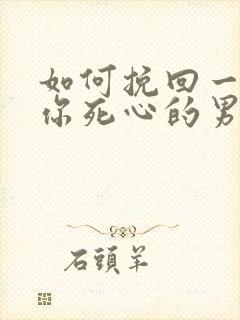 如何挽回一
你死心的男
石頭羊